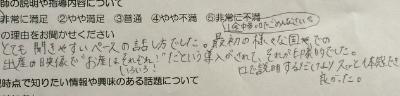 師の説明や指導内容について
非常に満足 ②やや満足 ③普通 ④やや不満 ⑤非常に不満
の理由をお聞かせください
とても聞きやすいペースの話し方でした。最初の様々な国での
出産の映像で"お産はそれぞれ!"だという導入がされて、それが印象的でした。
いろいろ!
口で説明するだけよりスッと体感でき
良かった。
現時点で知りたい情報や興味のある話題について